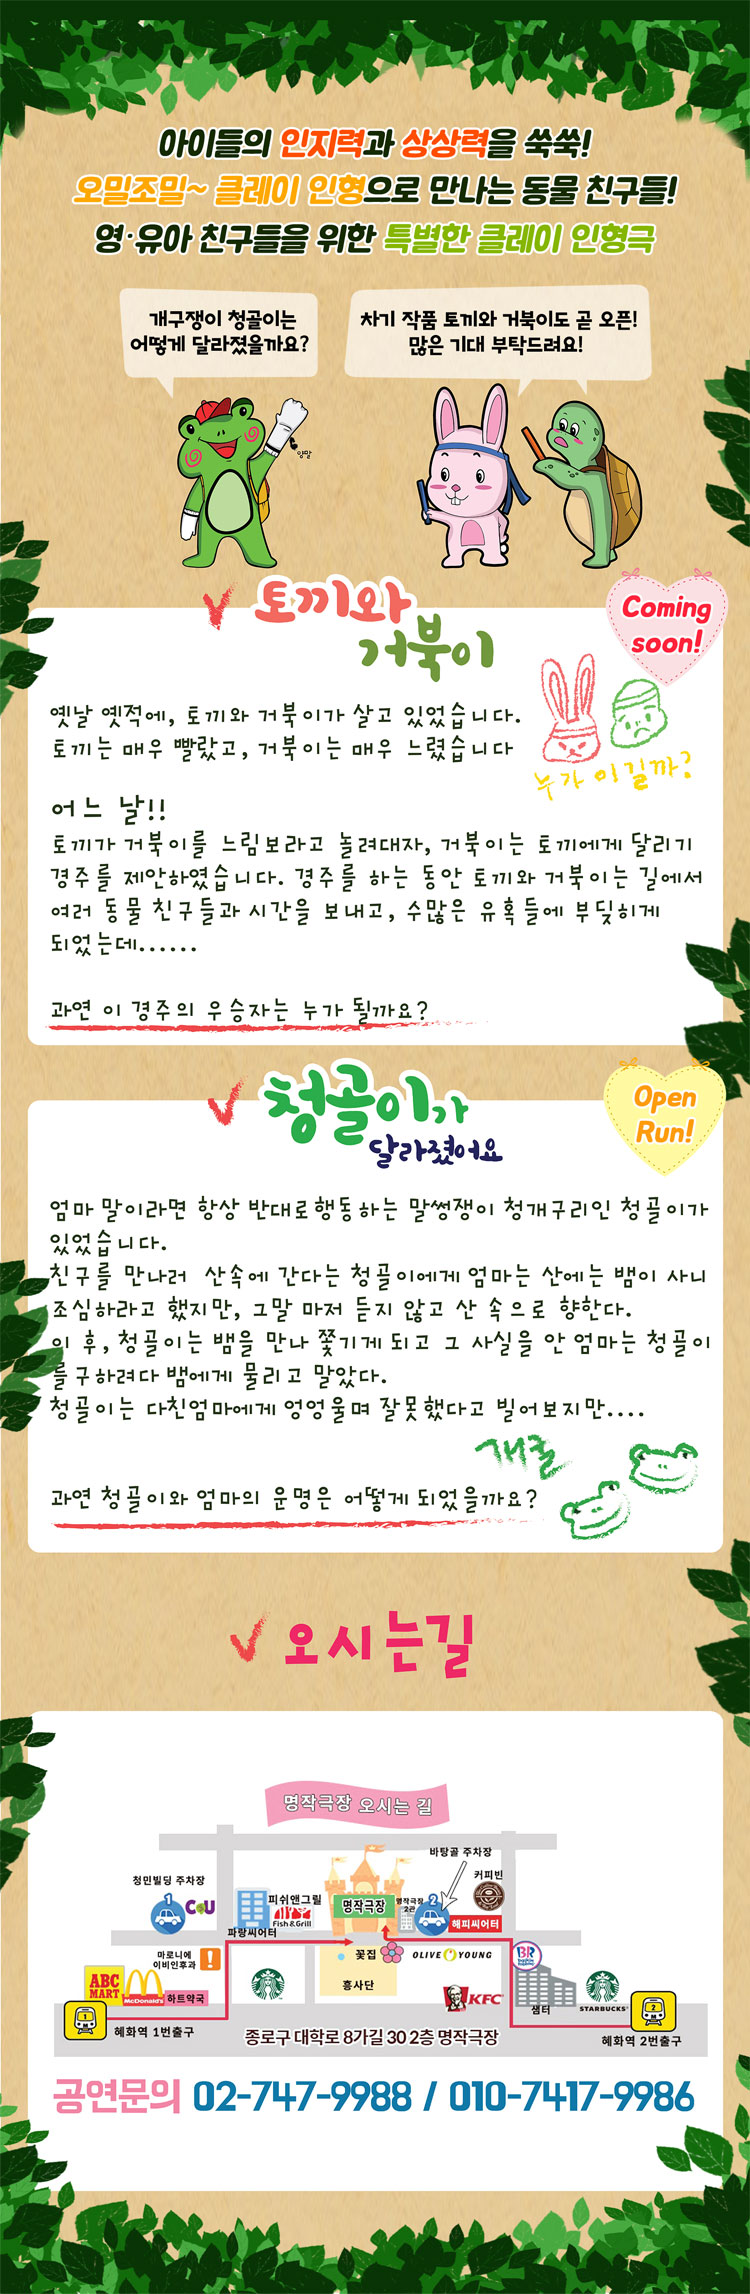 아이들의 인지력과 상상력을 쑥쑥!
오밀조밀~ 클레이 인형으로 만나는 동물 친구들!
영·유아 친구들을 위한 특별한 클레이 인형극
개구쟁이 청골이는
어떻게 달라졌을까요?
차기 작품 토끼와 거북이도 곧 오픈!
많은 기대 부탁드려요!
양말
토끼와
거북이
Coming
soon!
옛날 옛적에, 토끼와 거북이가 살고 있었습니다.
토끼는 매우 빨랐고, 거북이는 매우 느렸습니다
누가 이길까?
어느 날!!
토끼가 거북이를 느림보라고 놀려대자, 거북이는 토끼에게 달리기
경주를 제안하였습니다. 경주를 하는 동안 토끼와 거북이는 길에서
여러 동물 친구들과 시간을 보내고, 수많은 유혹들에 부딪히게
되었는데......
과연 이 경주의 우승자는 누가 될까요?
청골이가
달라졌어요
Open
Run!
엄마 말이라면 항상 반대로행동하는 말썽쟁이 청개구리인 청골이가
있었습니다.
친구를 만나러 산속에 간다는 청골이에게 엄마는 산에는 뱀이 사니
조심하라고 했지만, 그말 마저 듣지 않고 산 속으로 향한다.
이 후, 청골이는 뱀을 만나 쫓기게 되고 그 사실을 안 엄마는 청골이
를구하려다 뱀에게 물리고 말았다.
청골이는 다친엄마에게 엉엉울며 잘못했다고 빌어보지만....
개굴
과연 청골이와 엄마의 운명은 어떻게 되었을까요?
오시는길
명작극장 오시는 길
바탕골 주차장
청민빌딩 주차장
1
CU
피쉬앤그릴
Fish&Grill
파랑씨어터
명작극장
명작극장
2관
2
커피빈
해피씨어터
마로니에
이비인후과
꽃집
OLIVE YOUNG
BR
ABC
MART
McDonald's
하트약국
흥사단
KFC
샘터
STARBUCKS
1
혜화역 1번출구
종로구 대학로 8가길 30 2층 명작극장
2
혜화역 2번출구
공연문의 02-747-9988 / 010-7417-9986